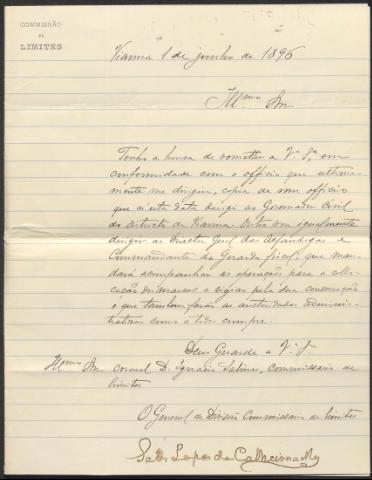 COMMISSÃO
DE
LIMITES
Vianna 1 de junho de 1896
Illmo Snr.
Tenho a honra de remetter a V. Sª, em
conformidade com o officio que ultima-
mente me dirigiu, copia de um officio
que n'esta data dirigi ao Governador Civil
do districto de Vianna. Outro vou igualmente
dirigir ao Director Geral das Alfandegas e
Commandante da Guarda fiscal, que man-
dará acompanhar as operações para a collo-
cação de marcos e vigiar pela sua conservação
o que tambem farão as auctoridades adminis-
trativas como a todos cumpre.
Deus Guarde a V. S.
Illmo Snr. coronel D. Ignacio Salinas, commissario de
limites
O General de Divisão Commissario de limites
Lopes de Calheiros